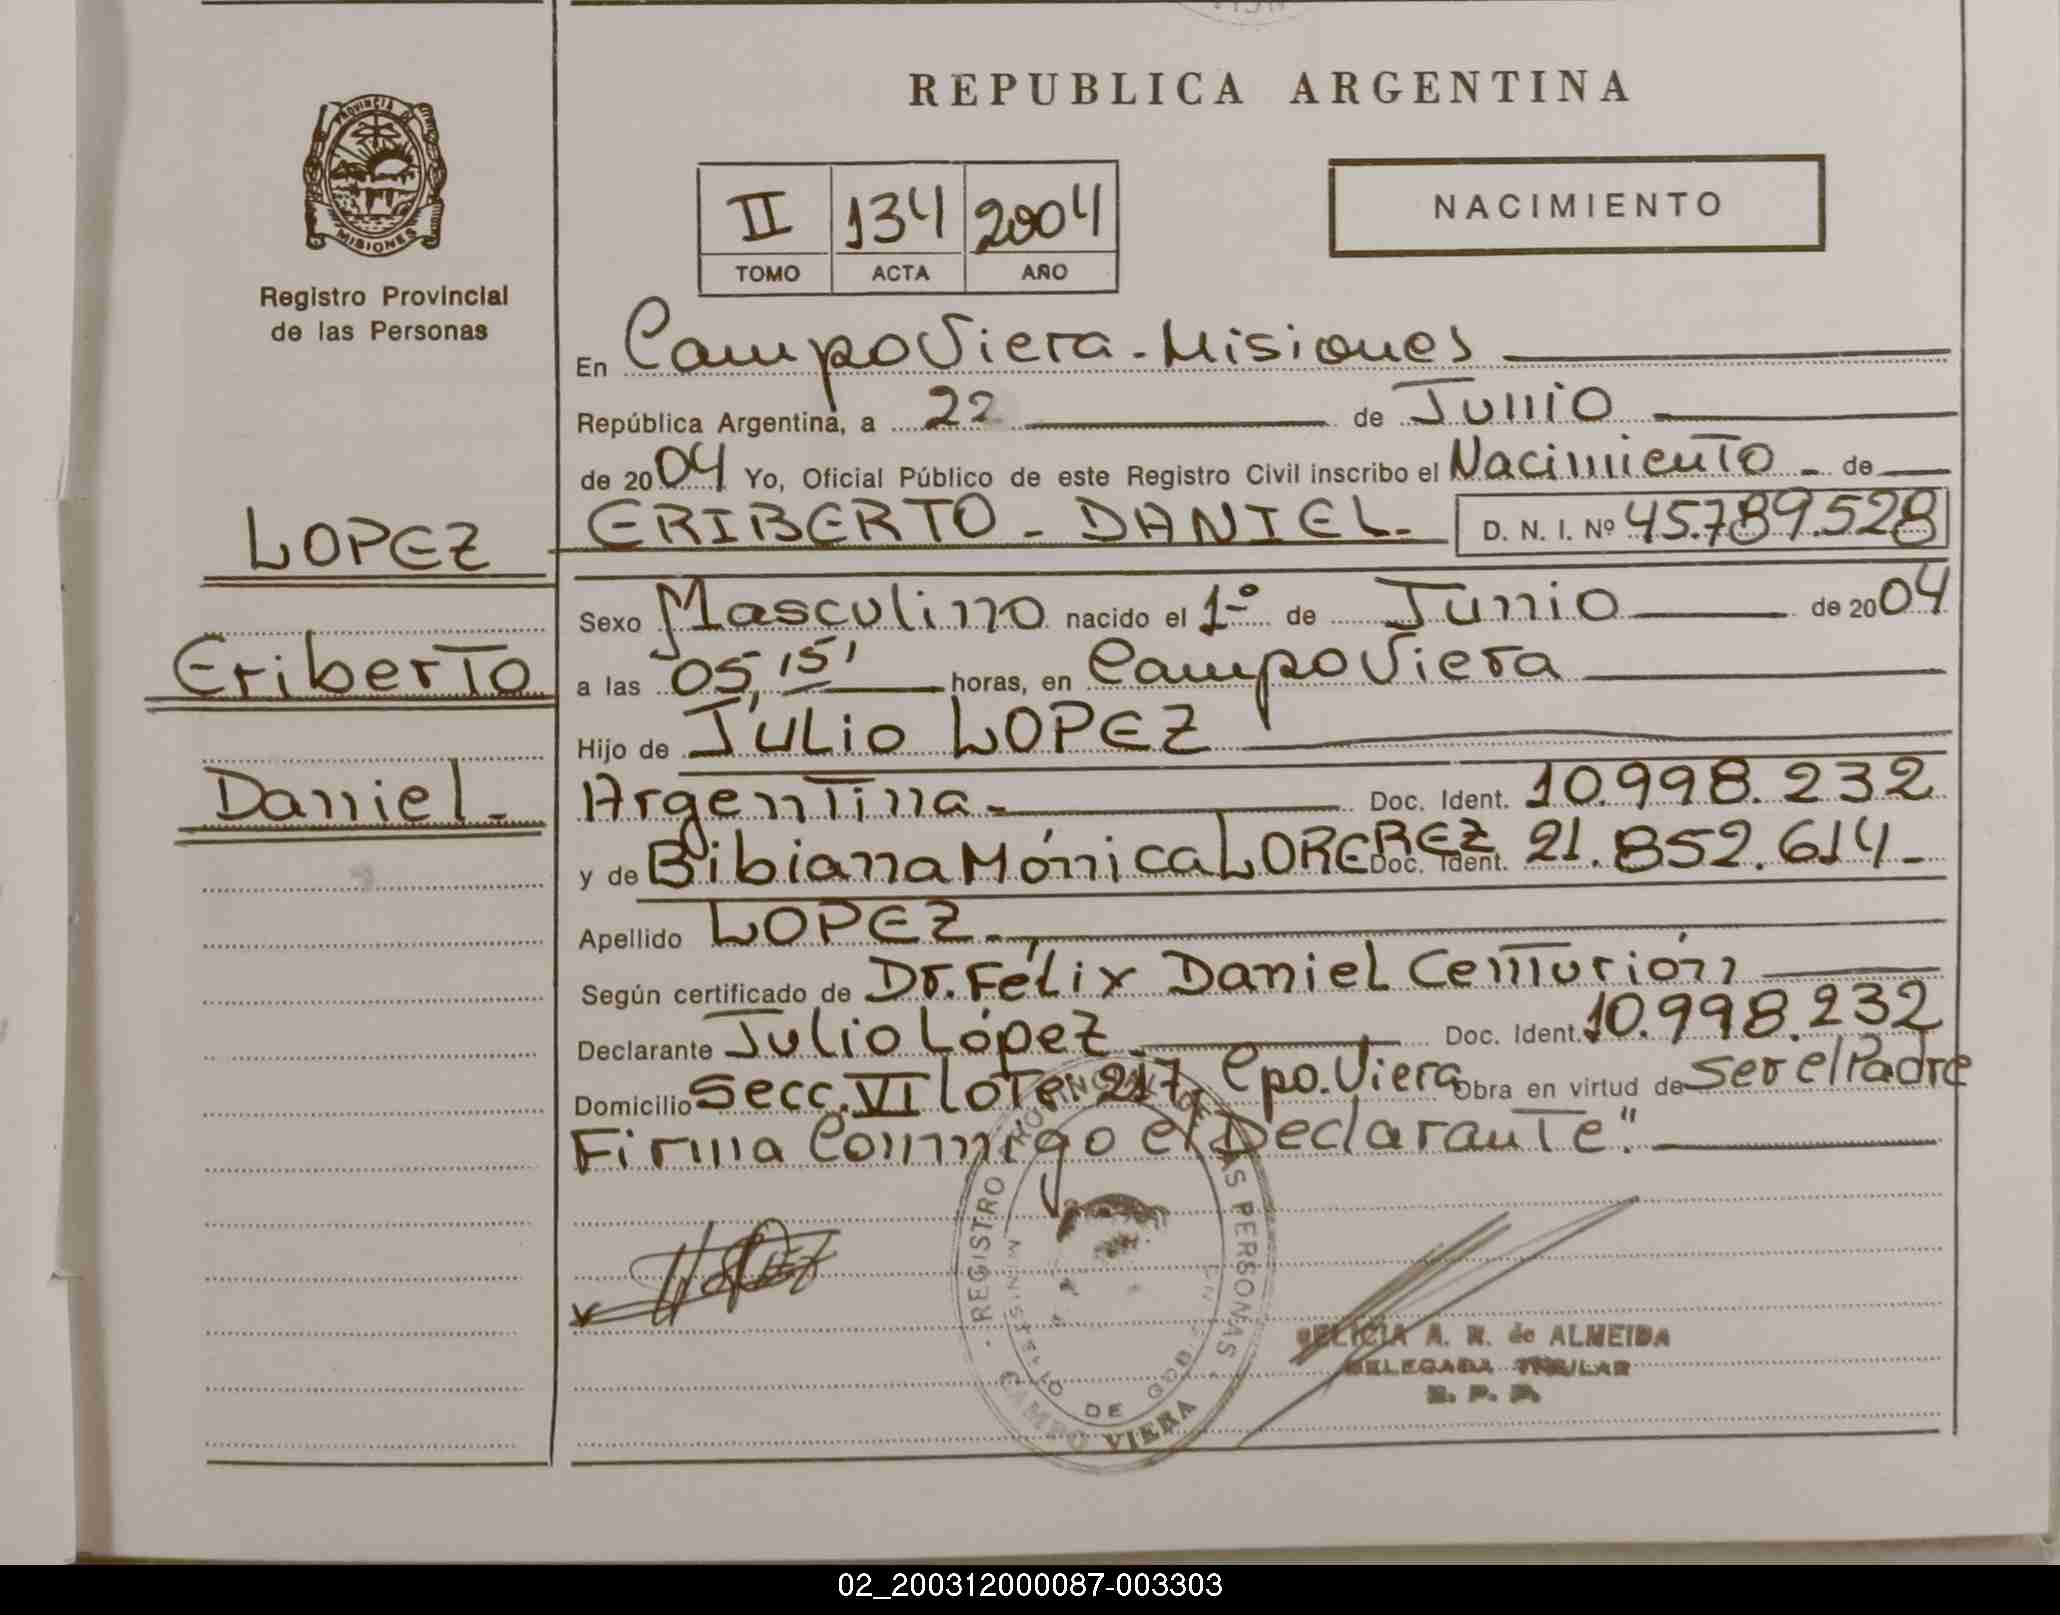 REPUBLICA ARGENTINA
PROVINCIA DE MISIONES
Registro Provincial
de las Personas
II 134 2004
TOMO ACTA AÑO
NACIMIENTO
En Campo Viera - Misiones
República Argentina, a 22 de Junio
de 2004 Yo, Oficial Público de este Registro Civil inscribo el Nacimiento - de
LOPEZ
ERIBERTO - DANIEL - D. N. I. Nº 45.789.528
Sexo Masculino nacido el 1º de Junio de 2004
Eriberto
a las 05,15' horas, en Campo Viera
Hijo de Julio LOPEZ
Daniel -
Argentina - Doc. Ident. 10.998.232
y de Bibiana Mónica LOREREZ Doc. Ident. 21.852.614 -
Apellido LOPEZ -
Según certificado de Dr. Félix Daniel Centurión
Declarante Julio López - Doc. Ident. 10.998.232
Domicilio Secc. VI lote 217, Cpo. Viera Obra en virtud de ser el Padre
Firma Conmigo el Declarante"
REGISTRO PROVINCIAL DE LAS PERSONAS
MINISTERIO DE GOB.
CAMPO VIERA
A. R. de ALMEIDA
DELEGADA TITULAR
R. P. P.
02_200312000087-003303